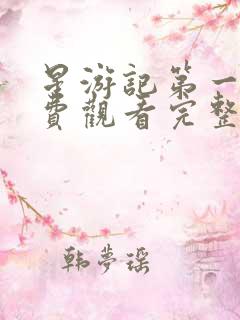 星游記第一
費觀看完整
韩夢瑶